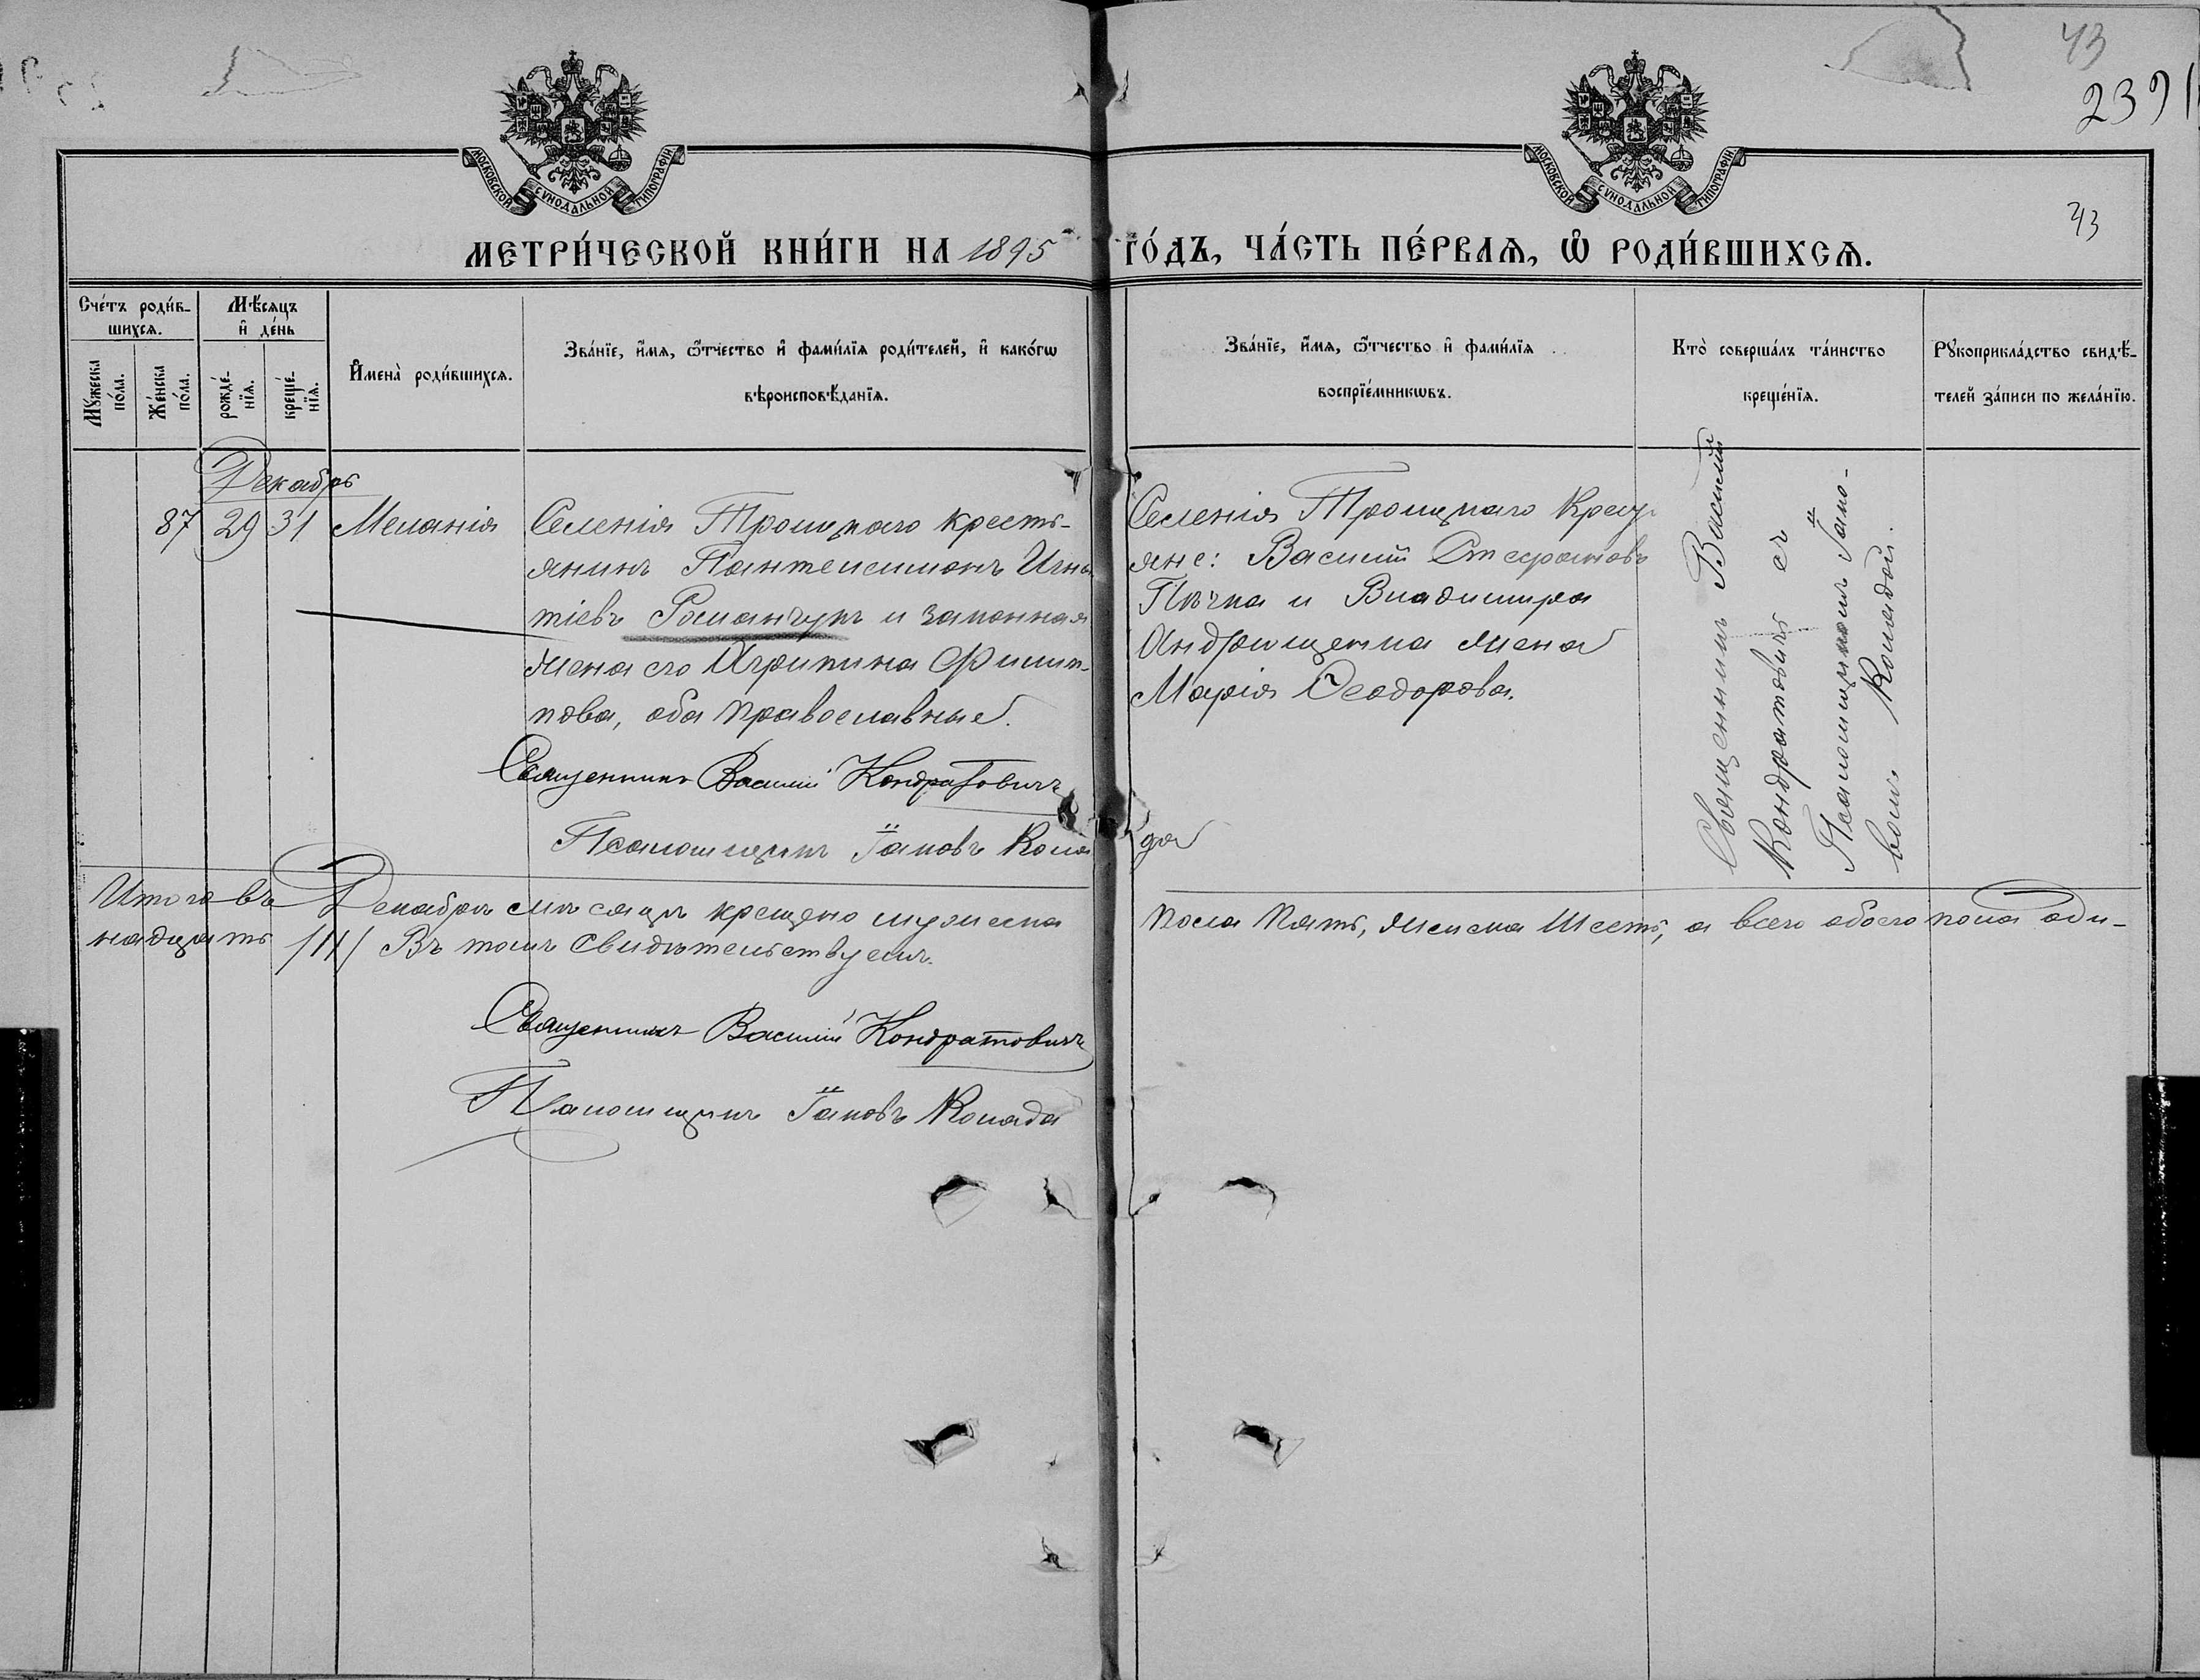 43
239
43
МОСКОВСКОЙ СѴНОДАЛЬНОЙ ТИПОГРАФІИ
МОСКОВСКОЙ СѴНОДАЛЬНОЙ ТИПОГРАФІИ
МЕТРИ́ЧЕСКОЙ КНИ́ГИ НА 1895 ГО́ДЪ, ЧА́СТЬ ПЕ́РВАѦ, Ѽ РОДИ́ВШИХСѦ.
Сче́тъ роди́в-
шихсѧ.
Мꙋ́жеска
по́ла.
Же́нска
по́ла.
Мѣ́сѧцъ
и҆ де́нь
рожде́-
нїѧ.
креще́-
нїѧ.
И҆мена̀ роди́вшихсѧ.
Зва́нїе, и҆́мѧ, ѻ҆́тчество и҆ фами́лїѧ роди́телей, и҆ како́гѡ
вѣроисповѣ́данїѧ.
Зва́нїе, и҆́мѧ, ѻ҆́тчество и҆ фами́лїѧ
воспрїе́мникѡвъ.
Кто̀ соверша́лъ та́инство
креще́нїѧ.
Рꙋкоприкла́дство свидѣ́-
телей за́писи по жела́нїю.
Декабрь
87 29 31 Меланія
Селенія Троицкаго кресть-
янинъ Пантелеимонъ Игна
тіевъ Романчукъ и законная
жена его Агрипина Филип-
пова, оба православные.
Священникъ Василій Кондратовичъ
Псаломщикъ Іаковъ Колода
Селенія Троицкаго Крест
яне: Василій
и Владимира
Андрющенка жена
Марія Ѳеодорова.
Священникъ Василій
Кондратовичъ съ
Псаломщикомъ Іако-
вомъ Колодой.
Итого въ Декабрѣ мѣсяцѣ крещено мужеска пола пять, женска шесть, а всего обоего пола оди-
надцать /11/ Въ томъ свидѣтельствуемъ.
Священникъ Василій Кондратовичъ
Псаломщикъ Іаковъ Колода